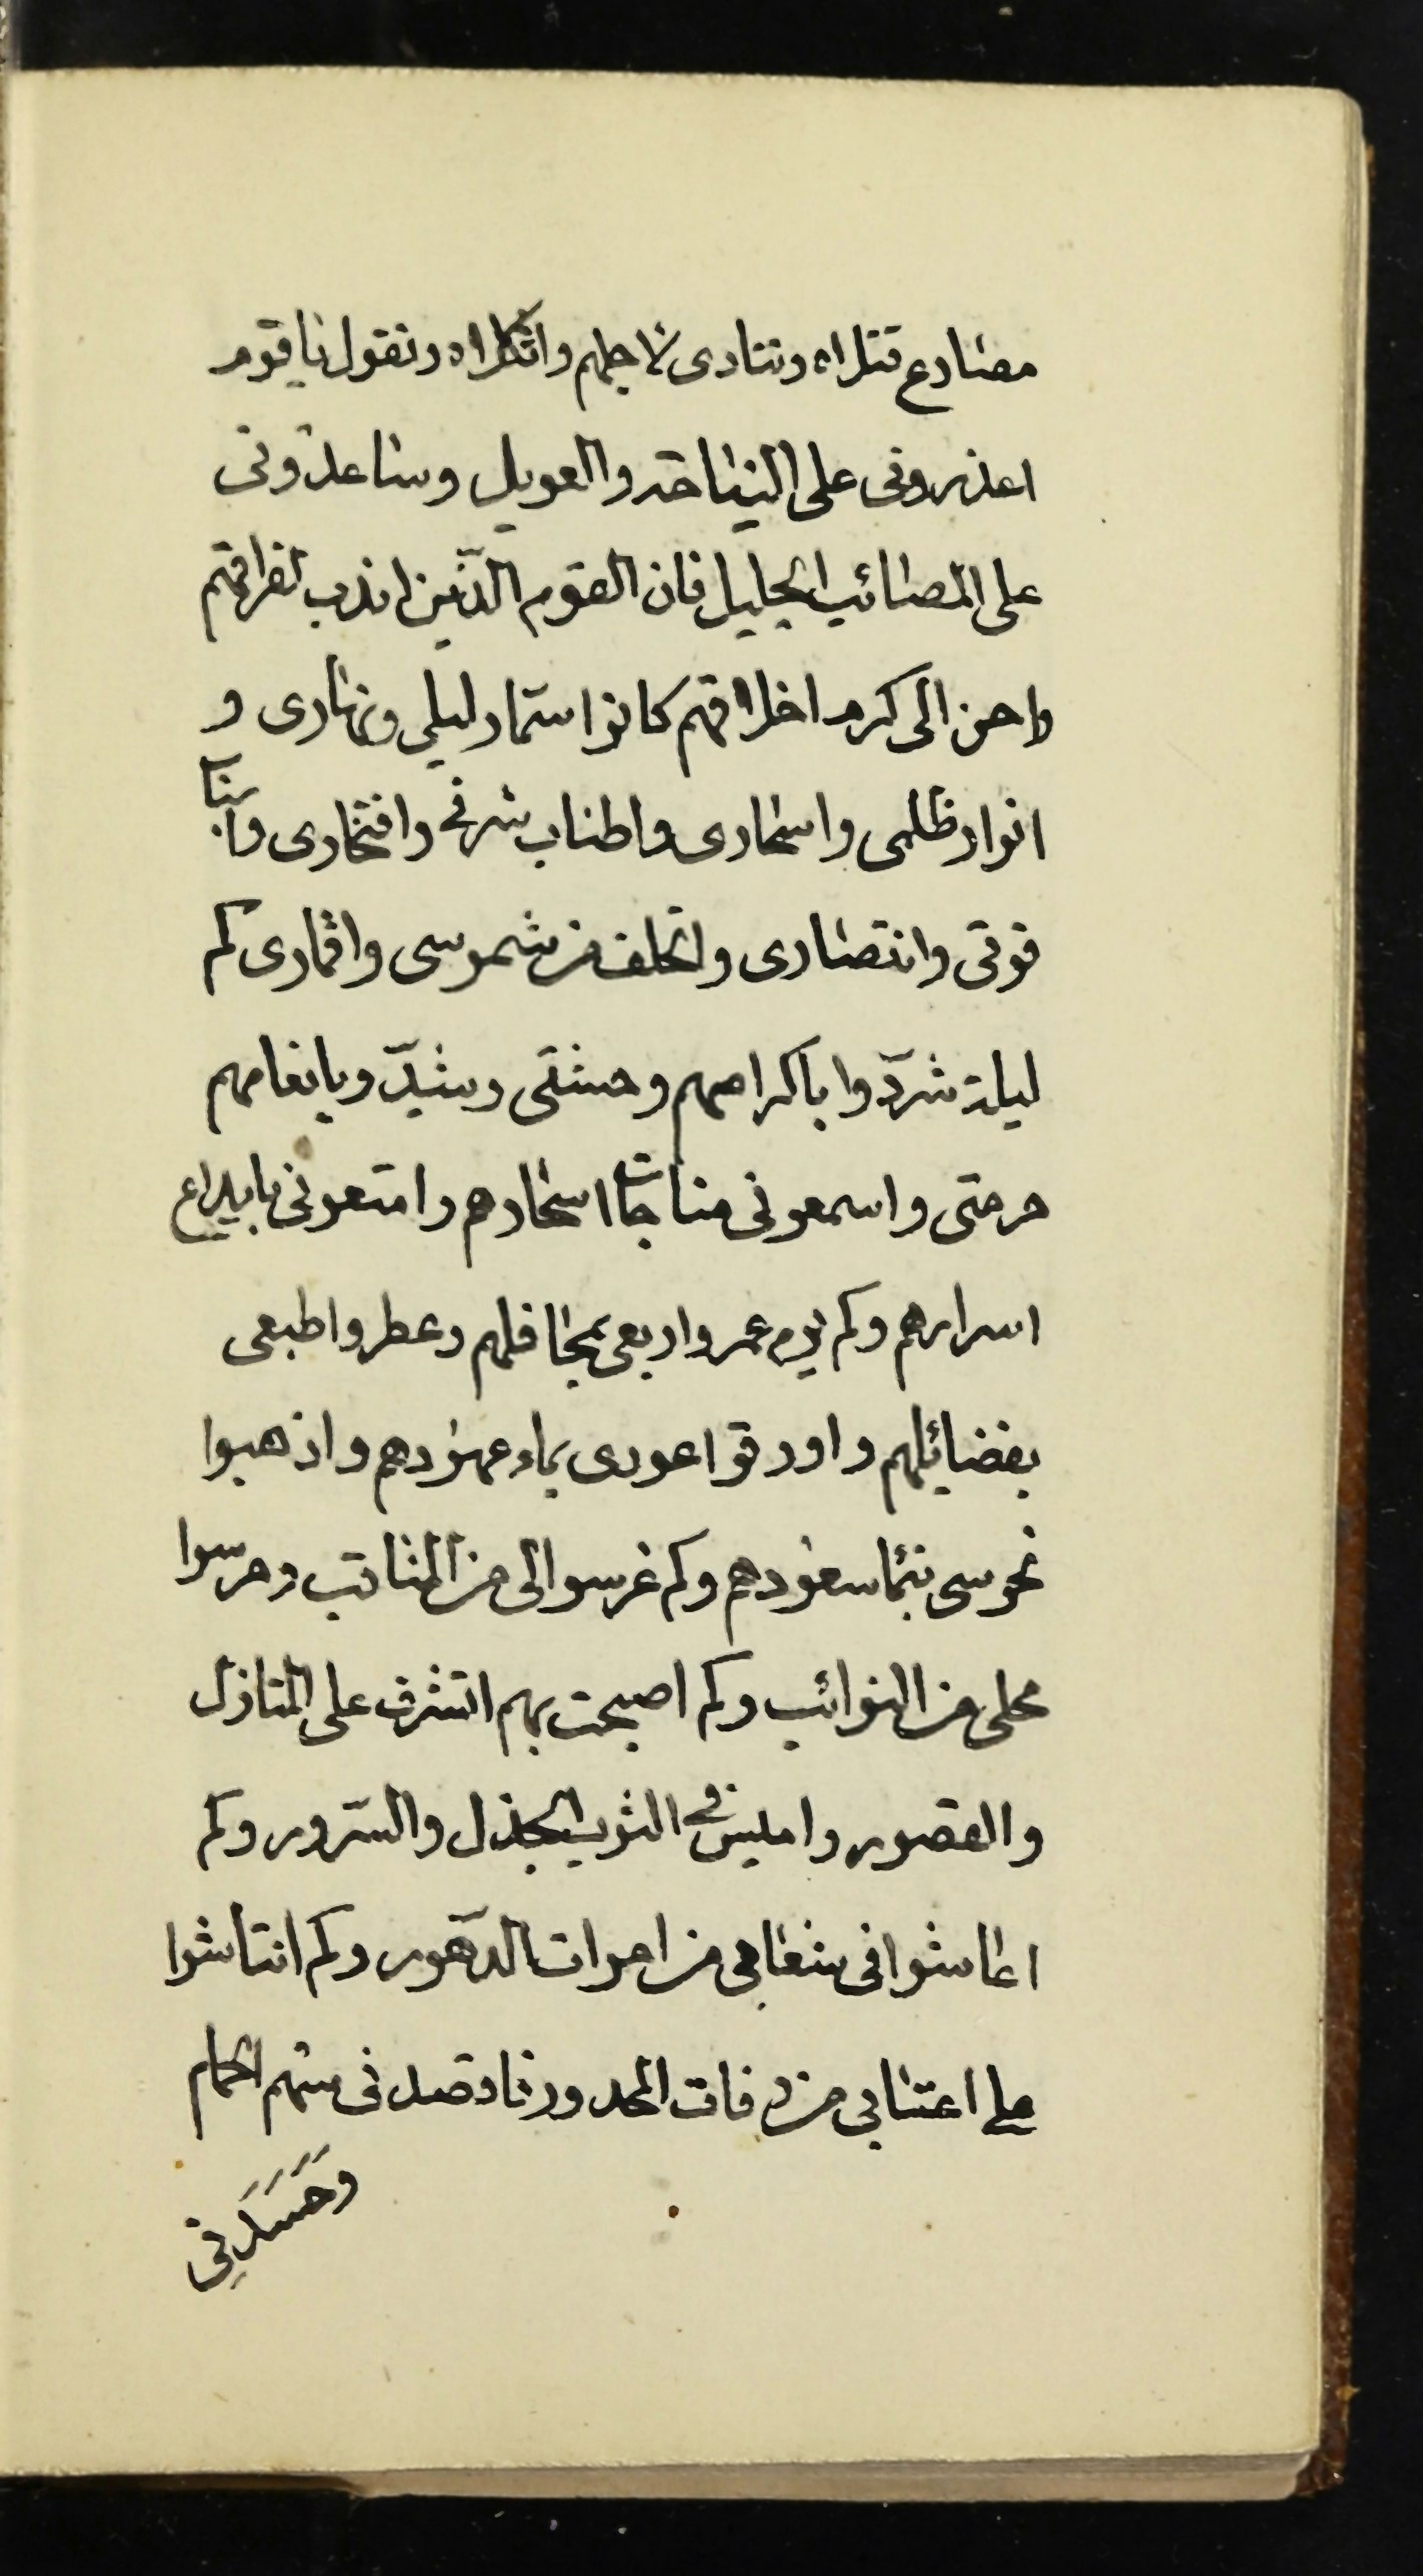 مصارع قتلاه وتنادى لاجلهم واثكلاه وتقول يا قوم
اعذرونى على النياحة والعويل وساعدونى
على المصائب الجليل فان القوم الذّين اندب لفراقهم
واحن الى كرم اخلاقهم كانوا سمار ليلى ونهارى و
انوار ظلمى واسحارى واطناب شرفى وافتخارى واسباب
قوتى وانتصارى والخلف من شموسى واقمارى كم
ليلة شرّدوا باكرامهم وحشتى وشيّدوا بانعامهم
حرمتى واسمعونى مناجات اسحارهم وامتعونى بايداع
اسرارهم وكم يوم عمروا ربعى بمحافلهم وعطروا طبعى
بفضائلهم واورقوا عودى بماء عهودهم واذهبوا
نحوسى بنماء سعودهم وكم غرسوا لى من المناقب وحرسوا
محلى من النوائب وكم اصبحت بهم اتشرف على المنازل
والقصور واميس فى الثوب الجذل والسّرور وكم
اعاشوا فى شعابى من اموات الدّهور وكم انتاشوا
على اعتتابى من رفات المحدور فاقصدنى سهم الحمام
وَحَسَدَنِى